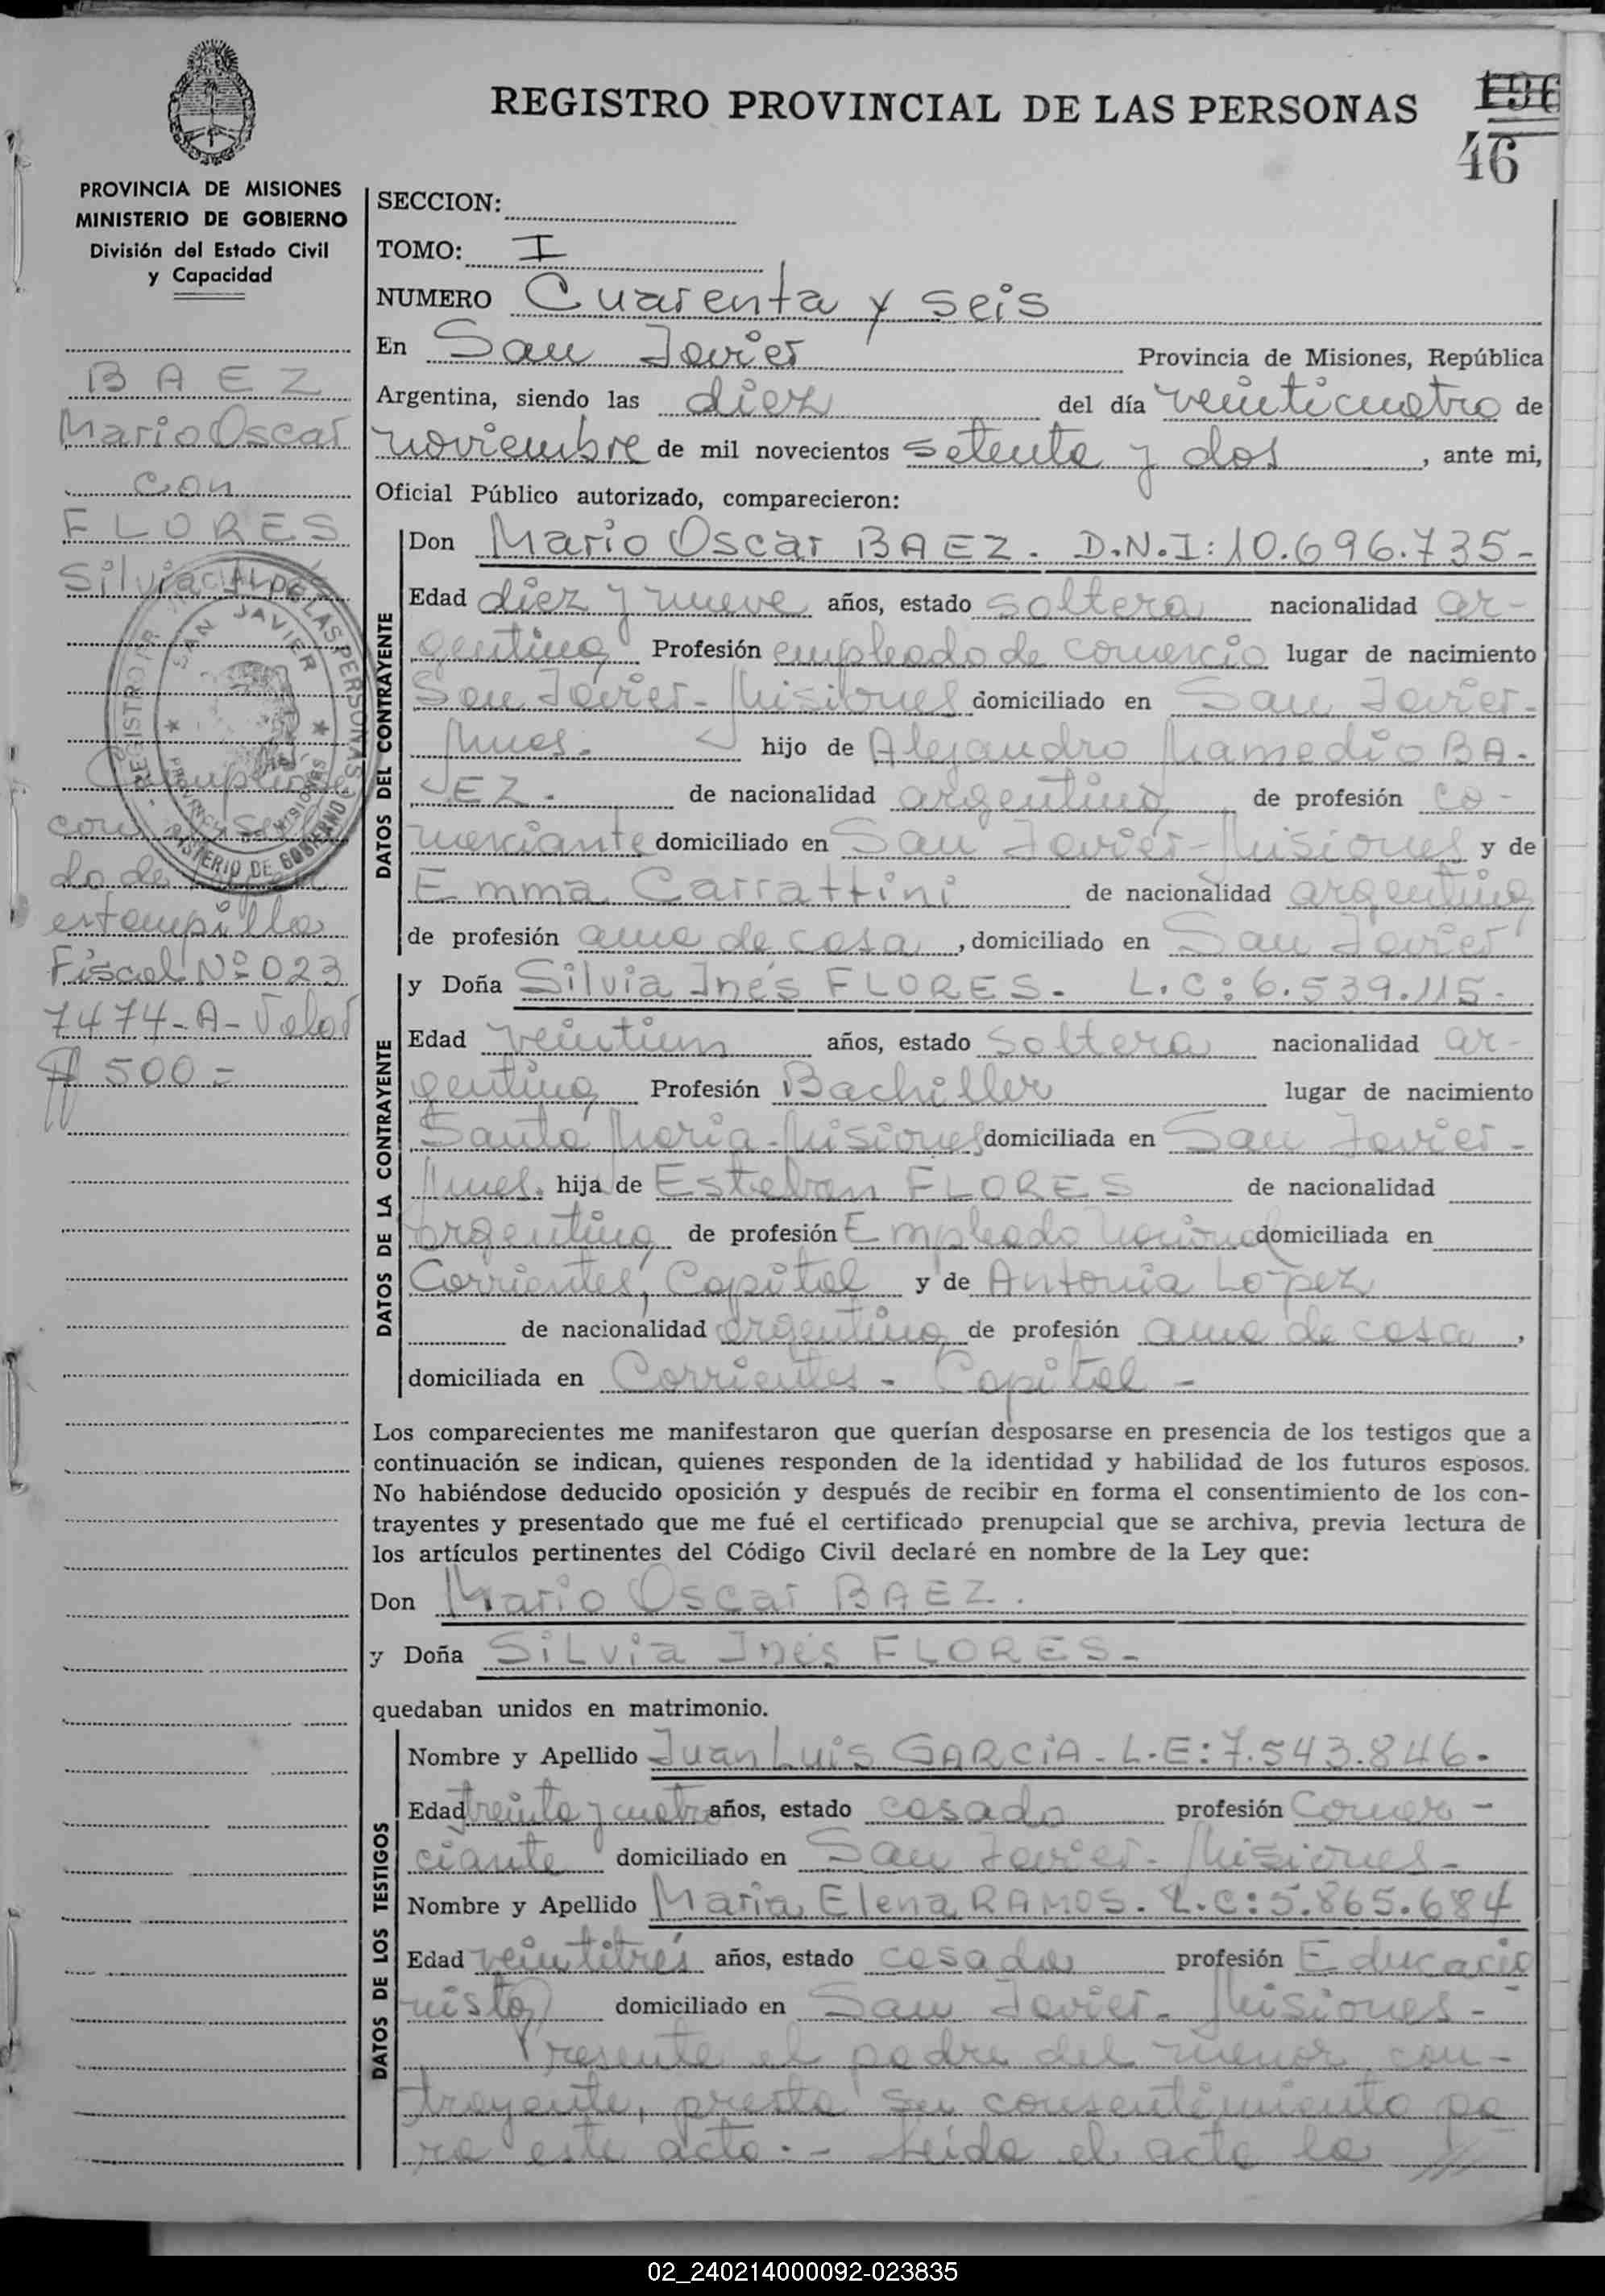 REGISTRO PROVINCIAL DE LAS PERSONAS
196
46
PROVINCIA DE MISIONES
MINISTERIO DE GOBIERNO
División del Estado Civil
y Capacidad
BAEZ
Mario Oscar
con
FLORES
Silvia
SAN JAVIER
MINISTERIO DE GOBIERNO
PROVINCIA DE MISIONES
Cumplione
con
do de
estampilla
Fiscal Nº 023
7474-A-Valor
$ 500=
SECCION:
TOMO: I
NUMERO Cuarenta y seis
En San Javier Provincia de Misiones, República
Argentina, siendo las diez del día veinticuatro de
noviembre de mil novecientos setenta y dos, ante mi,
Oficial Público autorizado, comparecieron:
DATOS DEL CONTRAYENTE
Don Mario Oscar BAEZ. D.N.I: 10.696.735-
Edad diez y nueve años, estado soltera nacionalidad ar-
gentina Profesión empleado de comercio lugar de nacimiento
San Javier-Misiones domiciliado en San Javier-
Mnes. hijo de Alejandro Mamedio BA-
EZ. de nacionalidad argentina de profesión co-
merciante domiciliado en San Javier-Misiones y de
Emma Carrattini de nacionalidad argentina
de profesión ama de casa, domiciliado en San Javier
DATOS DE LA CONTRAYENTE
y Doña Silvia Inés FLORES. L.C: 6.539.115-
Edad veintium años, estado soltera nacionalidad ar-
gentina Profesión Bachiller lugar de nacimiento
Santa Maria-Misiones domiciliada en San Javier-
Mnes. hija de Esteban FLORES de nacionalidad
argentina de profesión Empleado Nacional domiciliada en
Corrientes, Capital y de Antonia Lopez
de nacionalidad argentina de profesión ama de casa,
domiciliada en Corrientes - Capital -
Los comparecientes me manifestaron que querían desposarse en presencia de los testigos que a
continuación se indican, quienes responden de la identidad y habilidad de los futuros esposos.
No habiéndose deducido oposición y después de recibir en forma el consentimiento de los con-
trayentes y presentado que me fué el certificado prenupcial que se archiva, previa lectura de
los artículos pertinentes del Código Civil declaré en nombre de la Ley que:
Don Mario Oscar BAEZ.
y Doña Silvia Inés FLORES-
quedaban unidos en matrimonio.
DATOS DE LOS TESTIGOS
Nombre y Apellido Juan Luis GARCIA-L.E: 7.543.846-
Edad treinta y cuatro años, estado casado profesión Comer-
ciante domiciliado en San Javier-Misiones-
Nombre y Apellido Maria Elena RAMOS. L.C: 5.865.684
Edad veintitrés años, estado casada profesión Educacio
nista domiciliado en San Javier-Misiones-
Presente el padre del menor con-
trayente, presta su consentimiento pa
ra este acto.- Leida el acta la ///
02_240214000092-023835